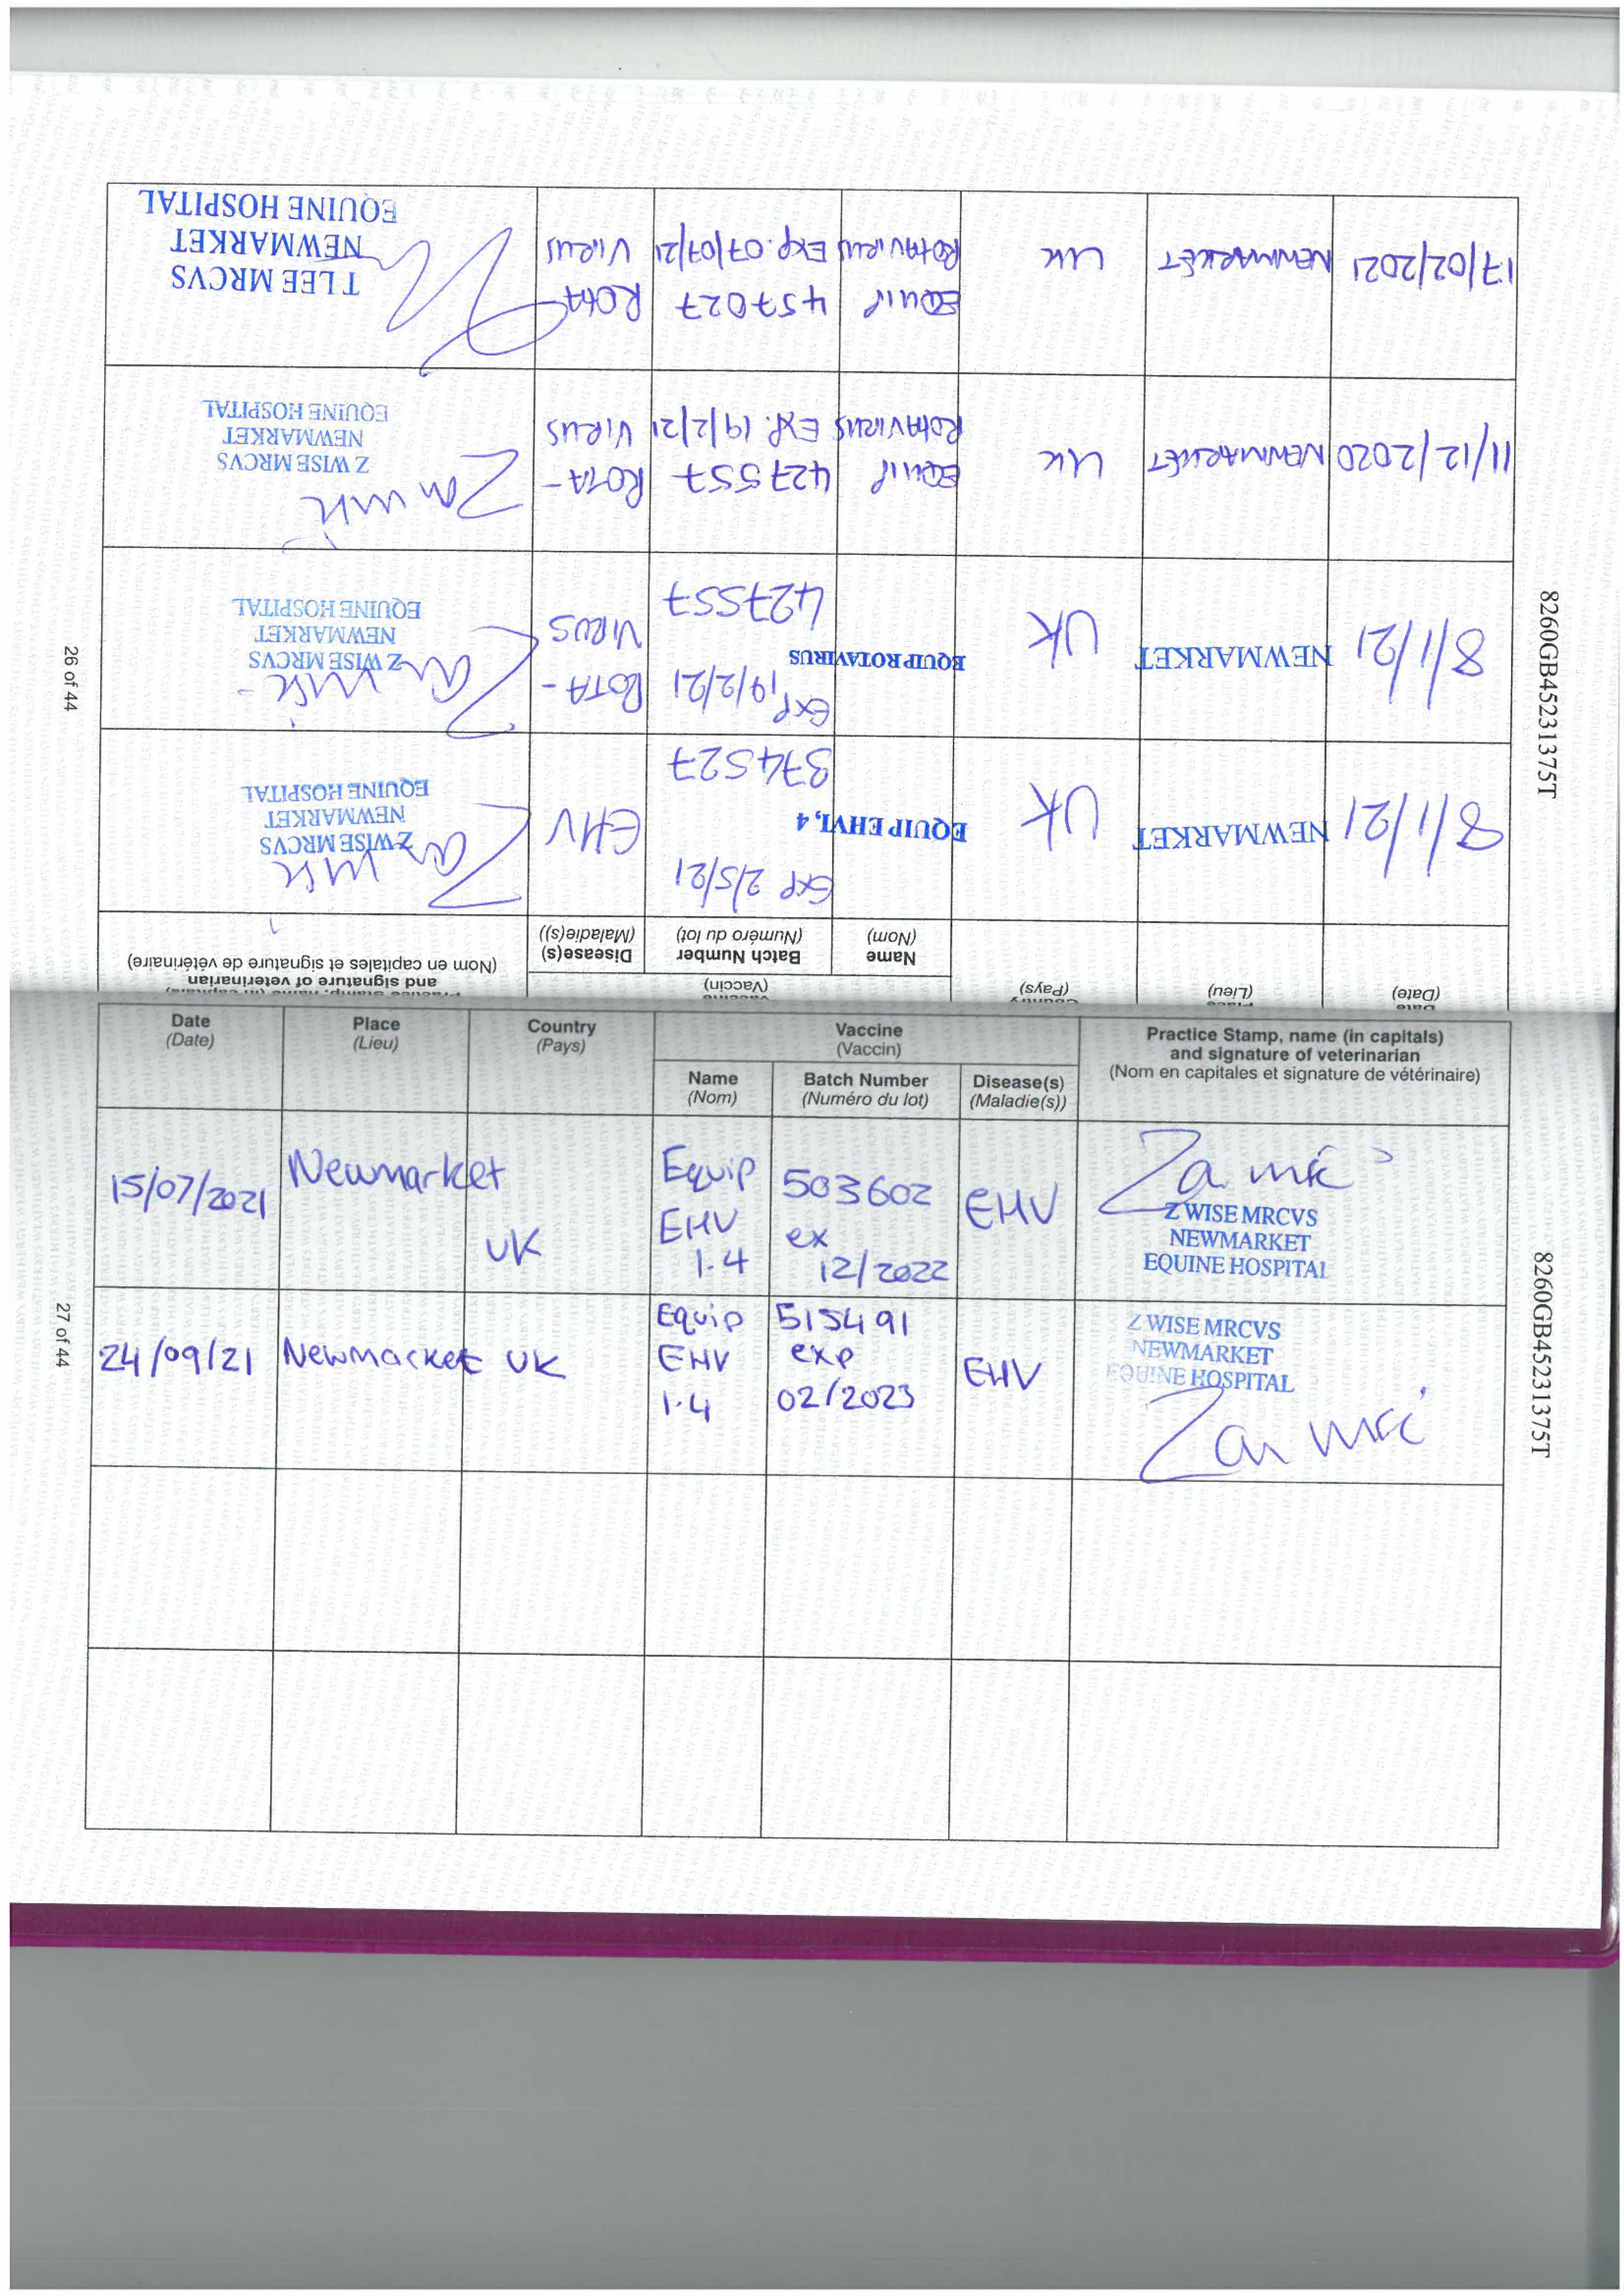 26 of 44
8260GB45231375T
Date
(Date)
Place
(Lieu)
Country
(Pays)
Vaccine
(Vaccin)
Name
(Nom)
Batch Number
(Numéro du lot)
Disease(s)
(Maladie(s))
Practice Stamp, name (in capitals)
and signature of veterinarian
(Nom en capitales et signature de vétérinaire)
8/1/21
NEWMARKET
UK
EQUIP EHV1, 4
EXP 2/5/21
374527
EHV
Z WISE MRCVS
NEWMARKET
EQUINE HOSPITAL
8/1/21
NEWMARKET
UK
EQUIP ROTAVIRUS
EXP 19/2/21
427557
ROTA-
VIRUS
Z WISE MRCVS
NEWMARKET
EQUINE HOSPITAL
11/12/2020
NEWMARKET
UK
EQUIP
ROTAVIRUS
427557
EXP. 19/2/21
ROTA-
VIRUS
Z WISE MRCVS
NEWMARKET
EQUINE HOSPITAL
17/02/2021
NEWMARKET
UK
EQUIP
ROTAVIRUS
457027
EXP. 07/07/21
ROTA
VIRUS
T LEE MRCVS
NEWMARKET
EQUINE HOSPITAL
27 of 44
8260GB45231375T
Date
(Date)
Place
(Lieu)
Country
(Pays)
Vaccine
(Vaccin)
Name
(Nom)
Batch Number
(Numéro du lot)
Disease(s)
(Maladie(s))
Practice Stamp, name (in capitals)
and signature of veterinarian
(Nom en capitales et signature de vétérinaire)
15/07/2021
Newmarket
UK
Equip
EHV
1.4
503602
ex
12/2022
EHV
Z WISE MRCVS
NEWMARKET
EQUINE HOSPITAL
24/09/21
Newmarket
UK
Equip
EHV
1.4
515491
exp
02/2023
EHV
Z WISE MRCVS
NEWMARKET
EQUINE HOSPITAL